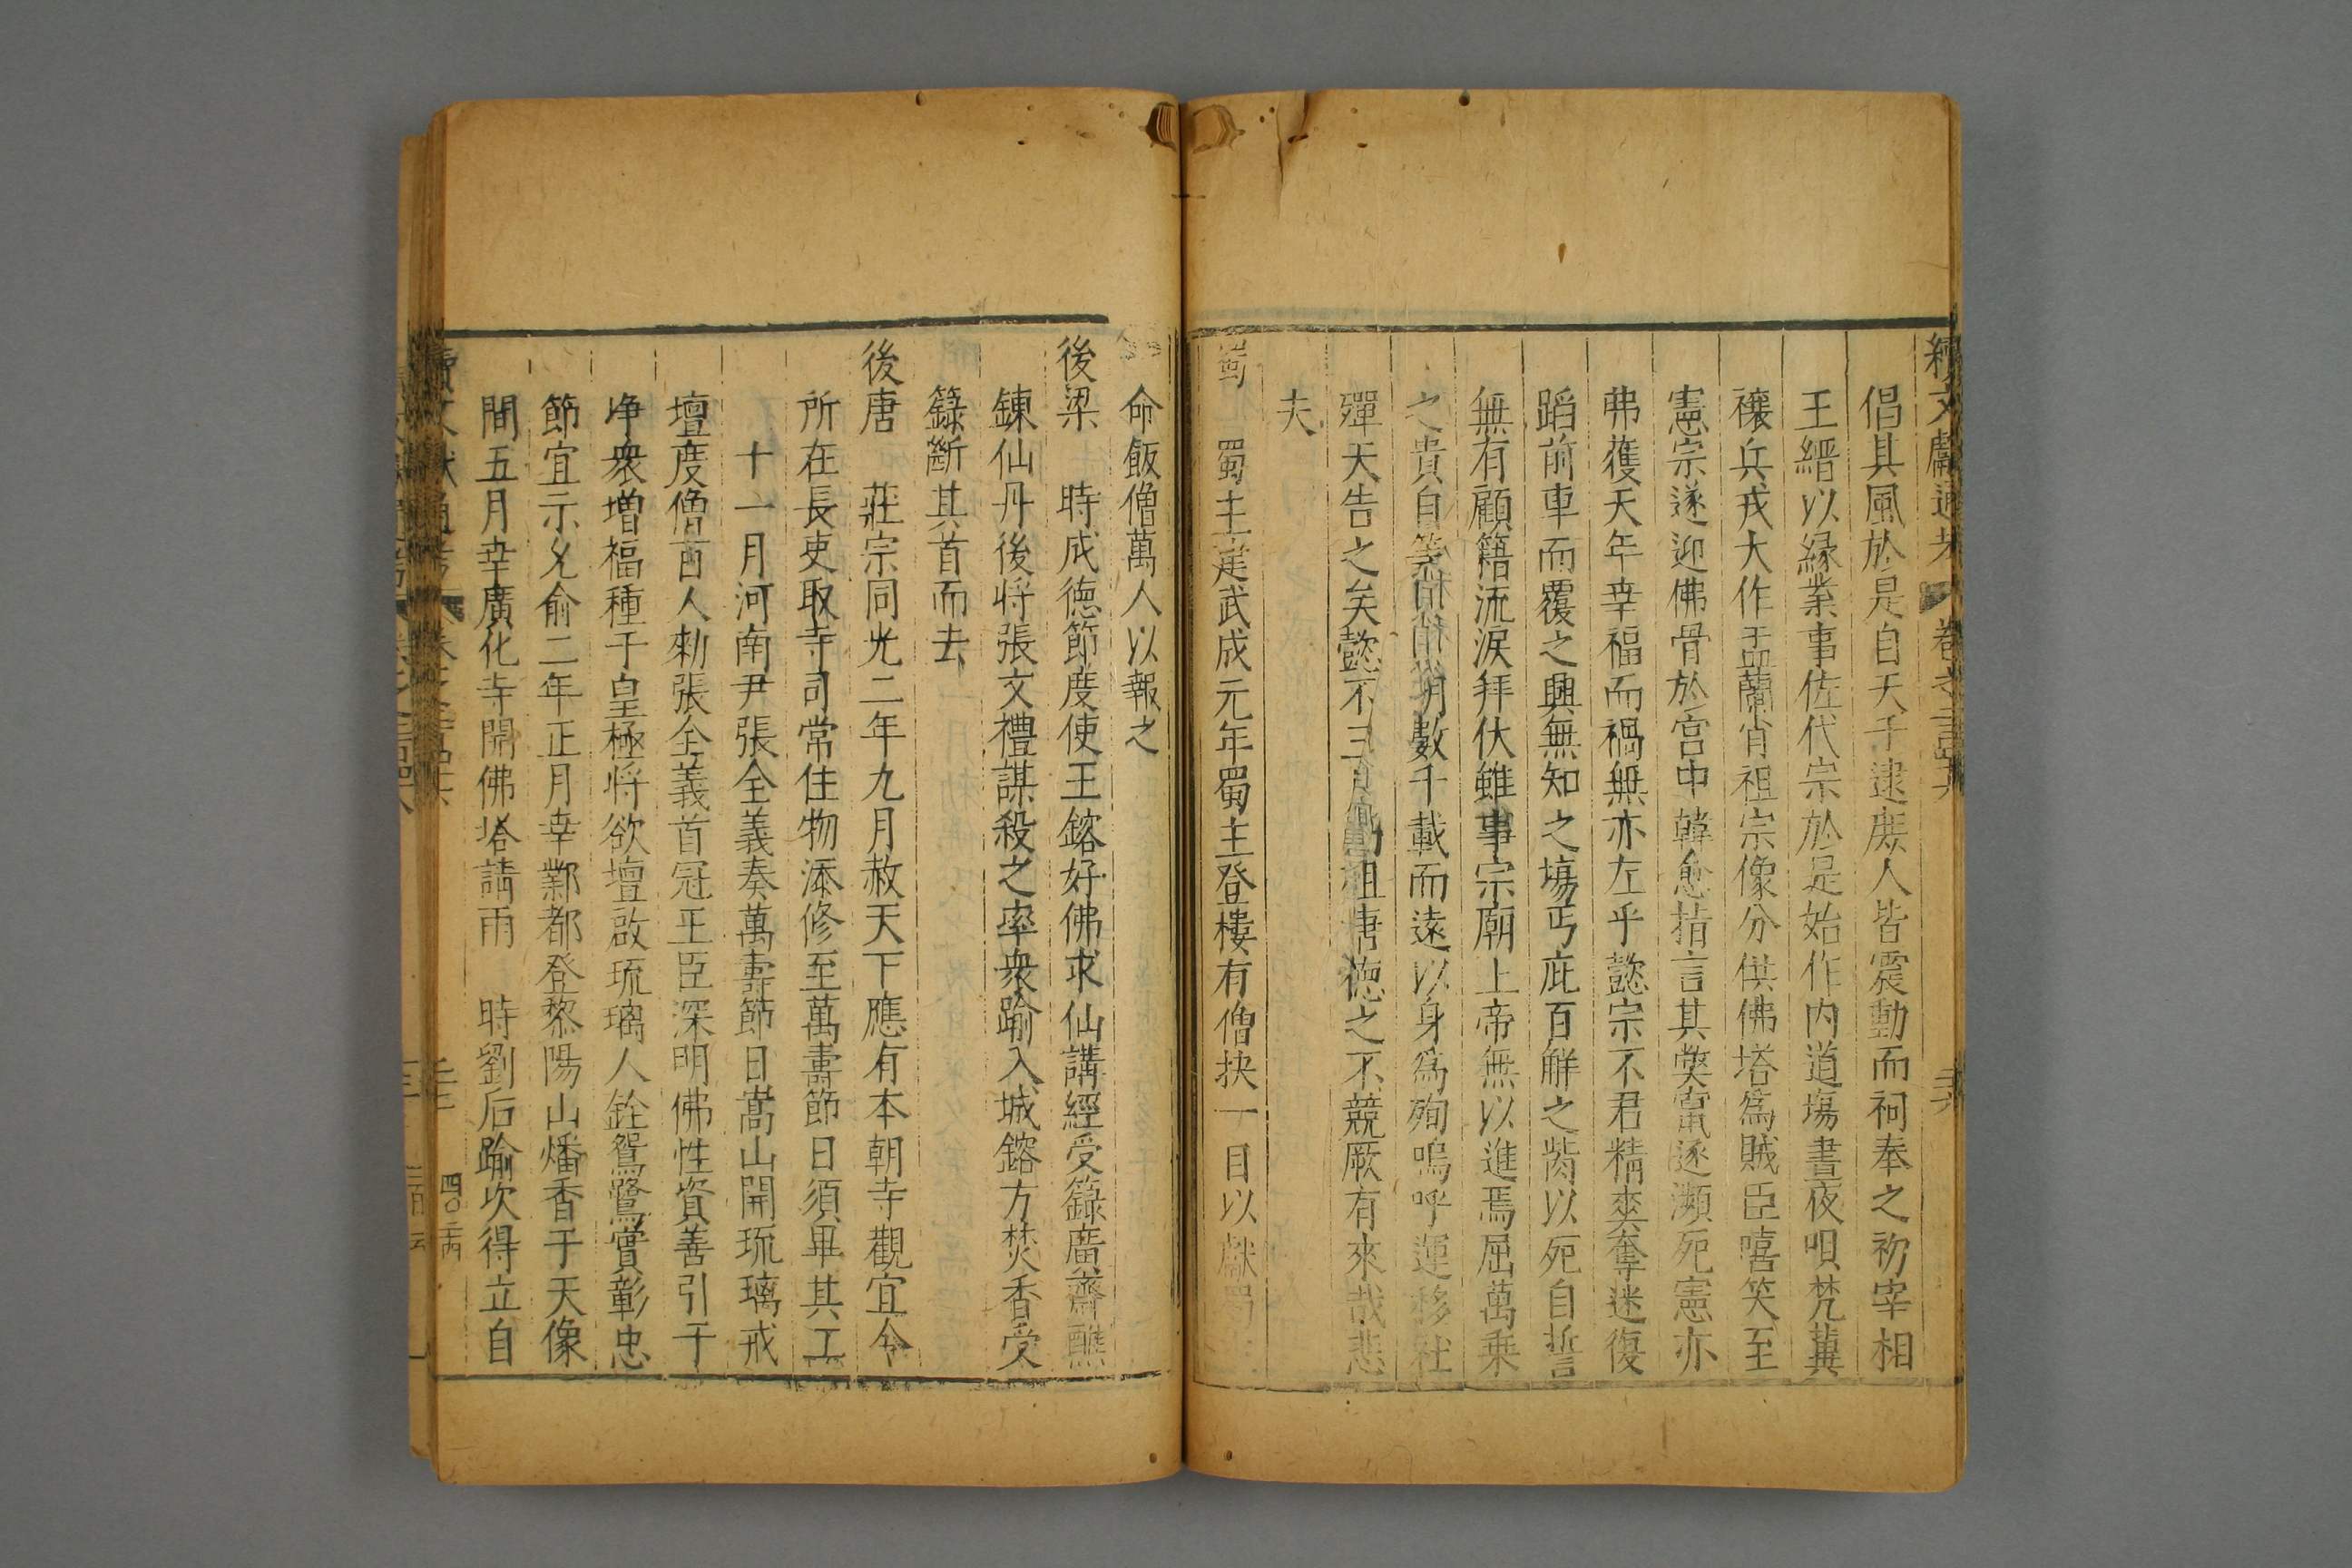 續文獻通考 卷之二百四十六 二六
倡其風於是自天子逮庶人皆震動而祠奉之初宰相
王縉以緣業事佐代宗於是始作内道塲晝夜唄梵冀
禳兵戎大作盂蘭肖祖宗像分供佛塔爲賊臣嘻笑至
憲宗遂迎佛骨於宮中韓愈指言其獘帝竄逐瀕死憲亦
弗獲天年幸福而禍無亦左乎懿宗不君精爽奪迷復
蹈前車而覆之興無知之塲丐庇百解之胔以死自誓
無有顧籍流淚拜伏雖事宗廟上帝無以進焉屈萬乗
之貴自等數千載而遠以身爲殉嗚呼運移社
殫天告之矣懿不三唐德之不競厥有來哉悲
夫
蜀 蜀主建武成元年蜀主登樓有僧抉一目以獻蜀主
命飯僧萬人以報之
後梁 時成德節度使王鎔好佛求仙講經受籙廣齋醮
鍊仙丹後将張文禮謀殺之率衆踰入城鎔方焚香受
籙斷其首而去
後唐 莊宗同光二年九月赦天下應有本朝寺觀宜令
所在長吏取寺司常住物添修至萬壽節日須畢其工
十一月河南尹張全義奏萬壽節日嵩山開琉璃戒
壇度僧百人勑張全義首冠王臣深明佛性資善引于
净衆增福種于皇極将欲壇啟琉璃人銓鴛鷺賞彰忠
節宜示允俞二年正月幸鄴都登黎陽山燔香于天像
間五月幸廣化寺開佛塔請雨 時劉后踰次得立自